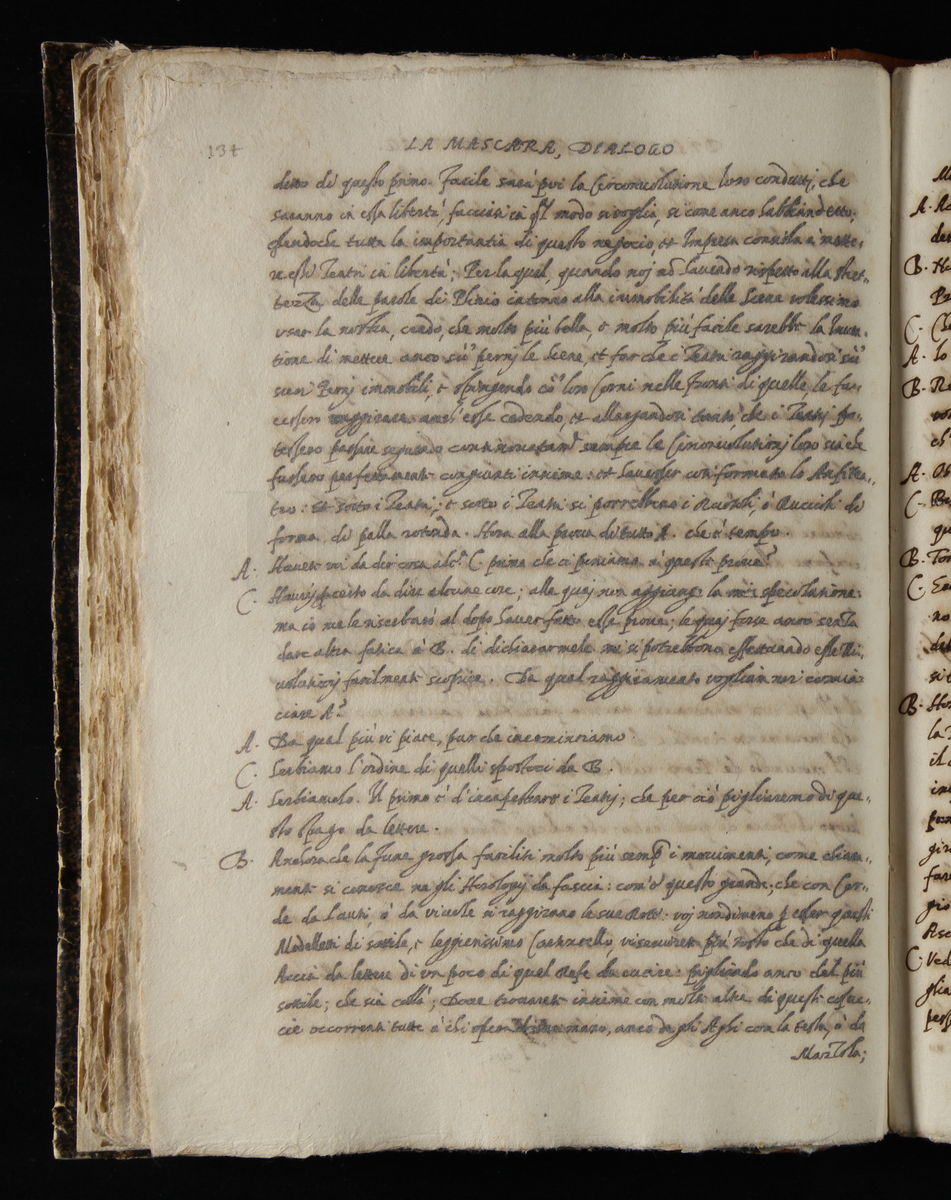 134
LA MASCARA, DIALOGO
detto di questo primo. Facile sarà poi la Circonuolutione loro condutti, che
saranno in essa libertà, facciasi in modo si voglia, si come anco l'abbiam detto,
essendoche tutta la importantia di questo negocio, et Impresa consista à mette-
re essi Teatri in libertà; Per la qual, quando noj nō hauendo rispetto alla stret-
tezza delle parole di Plinio intorno alla immobilità delle Scene volessimo
usar la nostra, credo, che molto più bella, e molto più facile sarebbe la Inuen-
tione di mettere anco sù perni le Scene et far che i Teatri raggirandosi sù
suoi Perni immobili, e spingendo cō loro Corni nelle Fronti di quelle, le fa-
cessero raggirare anch'esse cedendo, et allargandosi tanto, che i Teatrj po-
tessero passare seguendo continouatamte sempre le Circonuolutionj loro sin che
fussero perfettamente congiunti insieme: et hauesser conformato lo Anfitea-
tro: Et sotto i Teatri, e sotto i Teatri si porrebbono i Ruotoli, ò Ruccioli di
forma di palla rotonda. Hora alla proua di tutto A. che è tempo.
A. Hauete voi da dir cosa alca C. prima che ci poniamo à queste proue?
C. Haurej certo da dire alcune cose; alle quaj non aggiunge la mia specolatione:
ma io me le riserbarò al dopo hauer fatto esse proue; le quaj forse anco senza
dare altra fatica à B. di dichiararmele mi si potrebbono effettuando esse Ri-
uolutionj facilmente scoprire. Da qual raggiramento vogliam noi comin-
ciare A?
A. Da qual più vi piace, pur che incominciamo.
C. Serbiamo l'ordine di quelli spostoci da B.
A. Serbiamolo. Il primo è d'incapestrare i Teatrj; che per ciò pigliaremo di que-
sto spago da lettere.
B. Anchora che la fune grossa faciliti molto più sempre i mouimenti, come chiara-
mente si conosce ne gli Horologj da fascia: com'è questo grande, che con Cor-
de da Liuti, ò da viuole si raggirano le sue Rote: voj nondimeno per esser questi
Modelletti di sottile, e leggierissimo Cartoncello, viseruirete più tosto che di quella
Accia da lettere di vn poco di quel Refe da cucire: pigliando anco del più
sottile; che sia collà; Doue trouarete insieme con molte altre di queste cosuc-
cie occorrenti tutte à chi opera mano, anco de gli Aghi con la testa, ò da
Marzola;